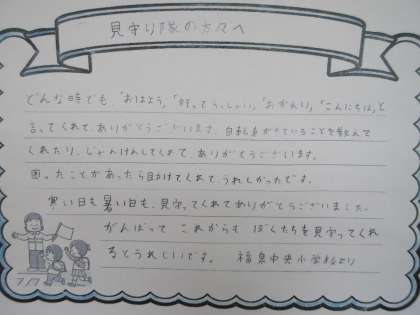 見守り隊の方々へ
どんな時でも、「おはよう」「行ってらっしゃい」「おかえり」「こんにちは」と
言ってくれて、ありがとうございます。自転車がきていることを教えて
くれたり、じゃんけんしてくれて、ありがとうございます。
困ったことがあったら助けてくれて、うれしかったです。
寒い日も暑い日も、見守ってくれてありがとうございました。
がんばって これからも ぼくたちを見守ってくれ
るとうれしいです。 福泉中央小学校より